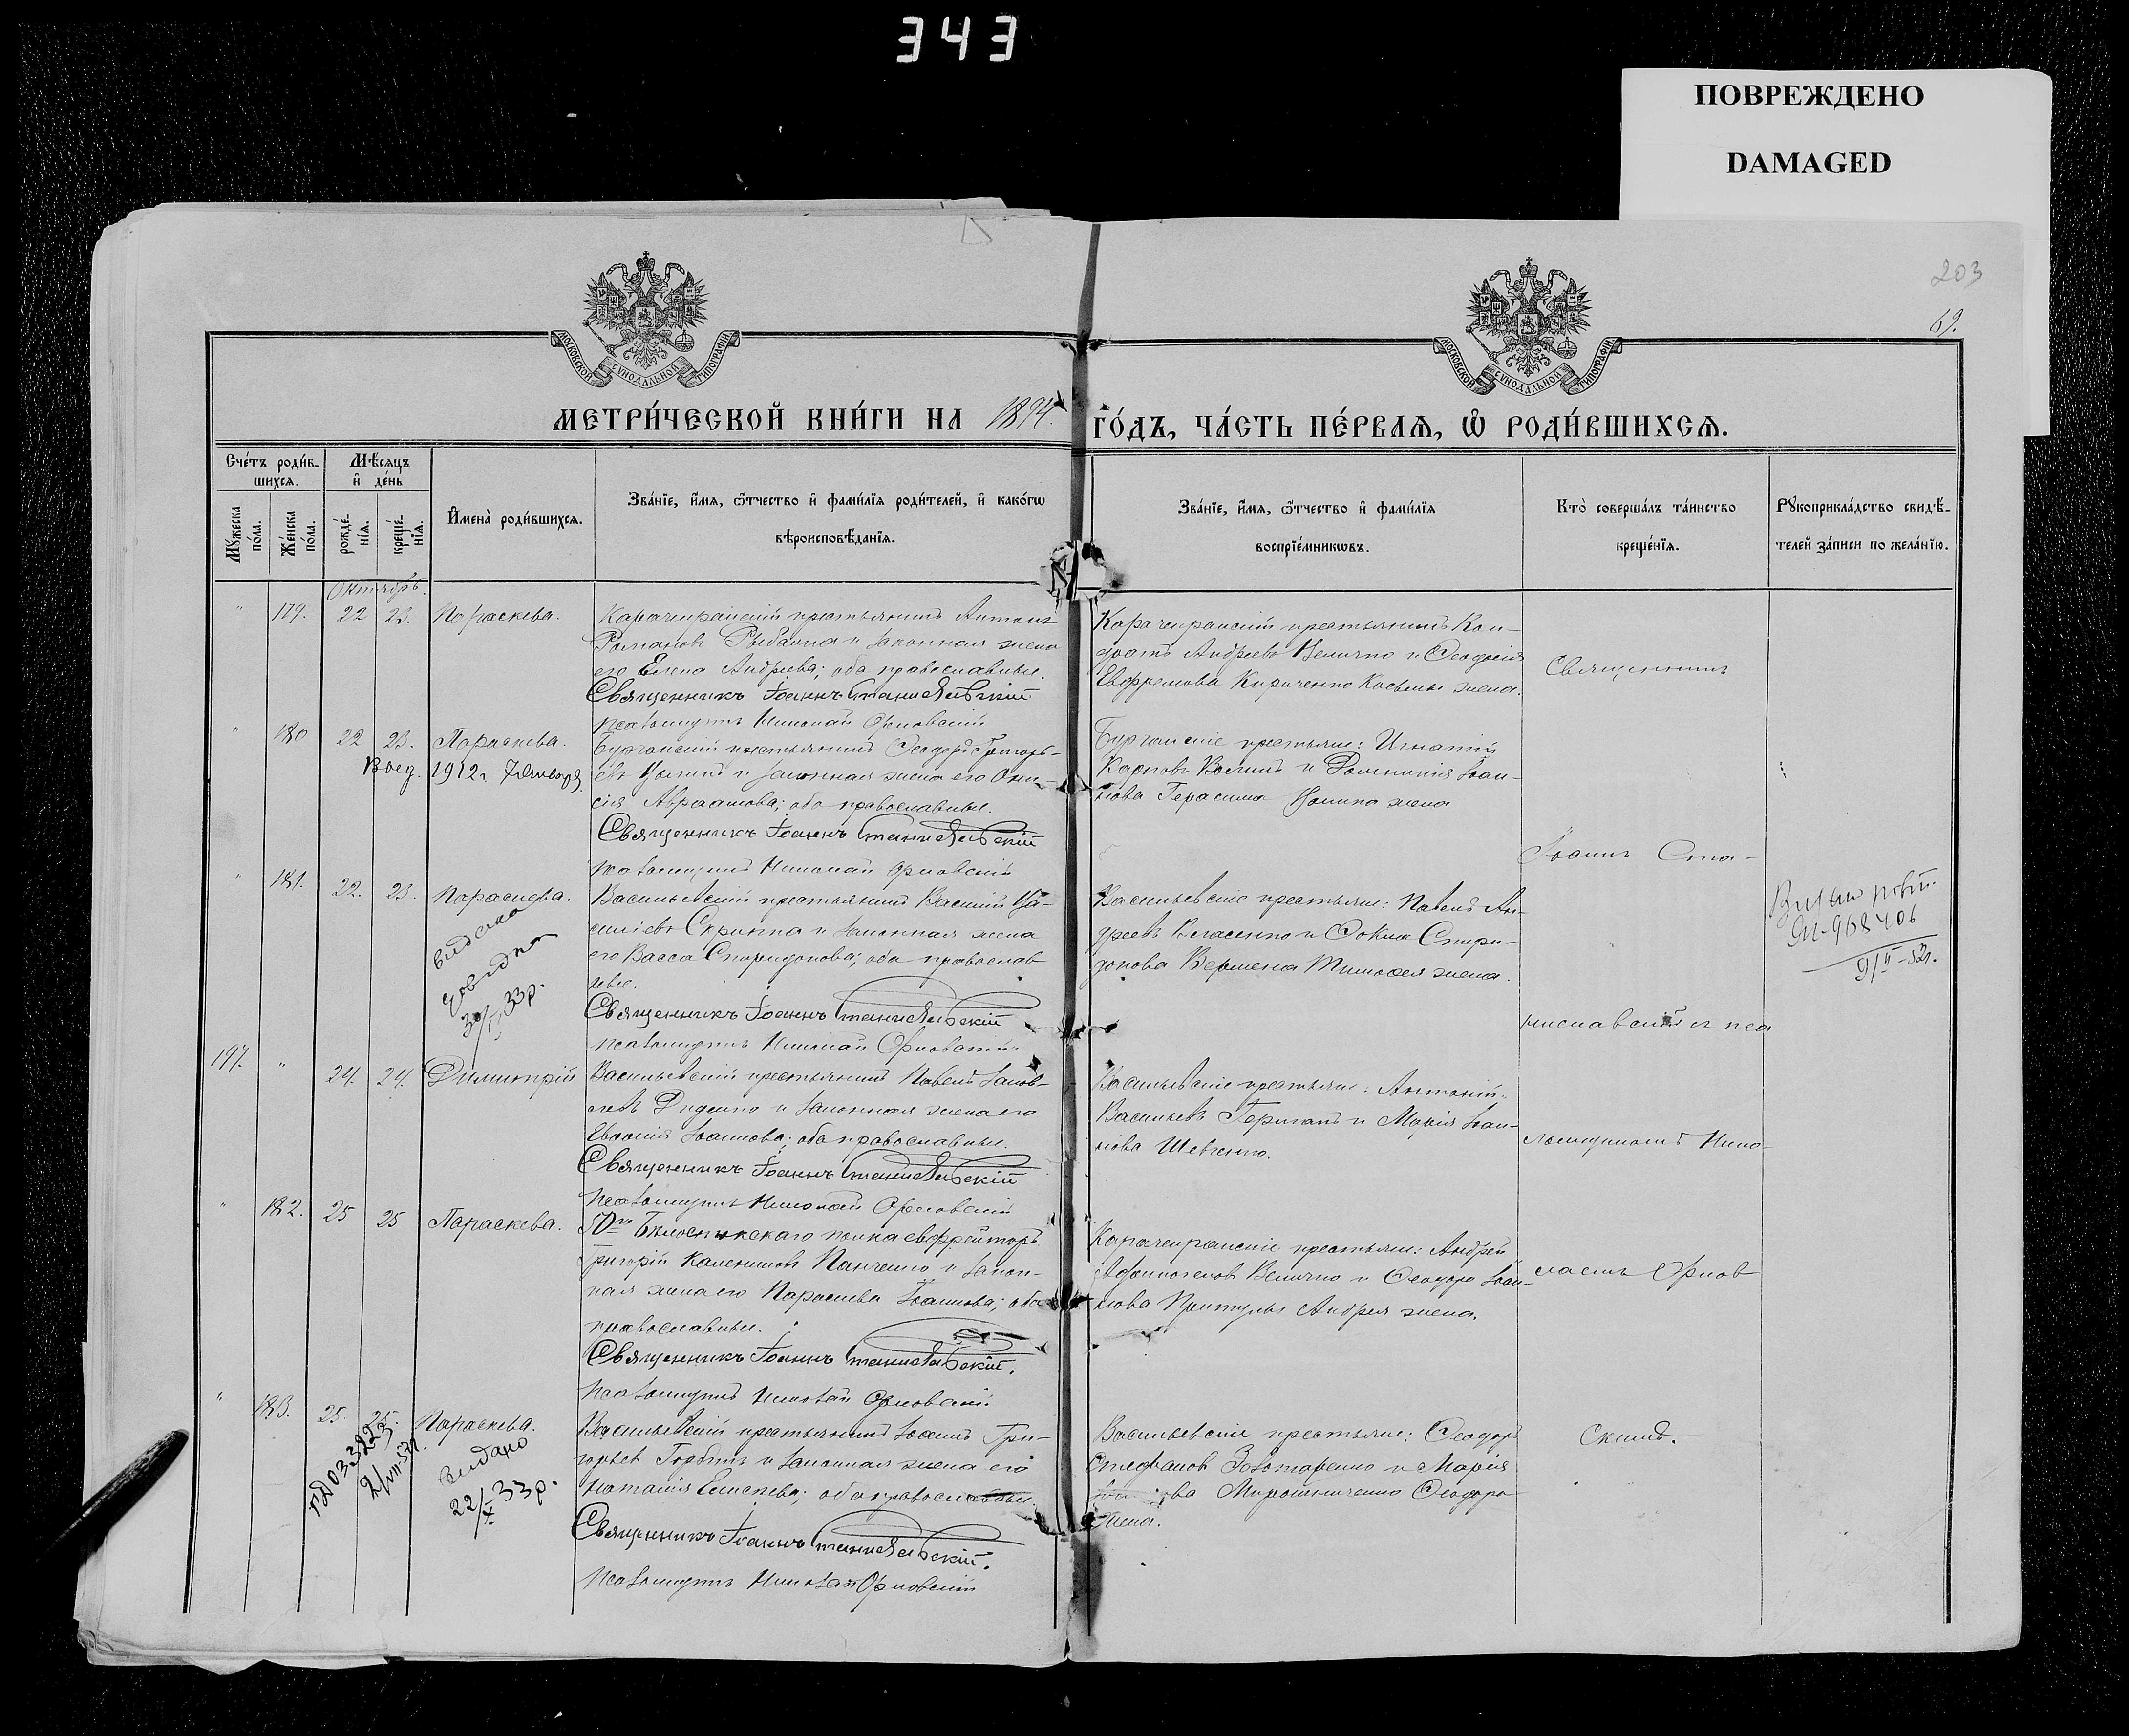 343
ПОВРЕЖДЕНО
DAMAGED
203
69.
МОСКОВСКОЙ СѴНОДАЛЬНОЙ ТИПОГРАФІИ
МОСКОВСКОЙ СѴНОДАЛЬНОЙ ТИПОГРАФІИ
МЕТРИ́ЧЕСКОЙ КНИ́ГИ НА 1894.
ГО́ДЪ, ЧА́СТЬ ПЕ́РВАѦ, Ѡ РОДИ́ВШИХСѦ.
Сче́тъ роди́в-
шихсѧ.
Мꙋ́жеска по́ла.
Же́нска по́ла.
Мѣ́сѧцъ
и҆ де́нь
рожде́-
нїѧ.
креще́-
нїѧ.
И҆мена̀ роди́вшихсѧ.
Зва́нїе, и҆́мѧ, ѻ҆́тчество и҆ фами́лїѧ роди́телей, и҆ како́гѡ
вѣроисповѣ́данїѧ.
Зва́нїе, и҆́мѧ, ѻ҆́тчество и҆ фами́лїѧ
воспрїе́мникѡвъ.
Кто̀ соверша́лъ та́инство
креще́нїѧ.
Рꙋкоприкла́дство свидѣ́-
телей за́писи по жела́нїю.
Октябрь.
" 179. 22 23. Параскева.
Карачекракскій крестьянинъ Антонъ
Романовъ Рыбалка и законная жена
его Елена Андреева; оба православные.
Священникъ Іоаннъ Станиславскій
Псаломщикъ Николай Орловскій
Карачекракскій крестьянинъ Кон-
дратъ Андреевъ Величко и Ѳеодосія
Евфремова Кириченко Косьмы жена.
" 180 22 23. Параскева.
Воед. 1912 г. 7 Января
крестьянинъ Ѳеодоръ Григорь-
евъ и законная жена его
Авраамова; оба православные.
Священникъ Іоаннъ Станиславскій
Псаломщикъ Николай Орловскій
крестьяне: Игнатій
Карповъ и Домникія Іоан-
нова Герасима жена
" 181. 22. 23. Параскева.
видана
довидка
33 р.
Васильевскій крестьянинъ Василій Ва-
сильевъ Скрипка и законная жена
его Васса Спиридонова; оба православ-
ные.
Священникъ Іоаннъ Станиславскій
Псаломщикъ Николай Орловскій
Васильевскіе крестьяне: Павелъ Ан-
дреевъ Власенко и Ѳекла Спири-
донова Тимоѳея жена.
968406
9/II-53г.
197. " 24. 24. Димитрій
Васильевскій крестьянинъ Павелъ Іаков-
левъ Диденко и законная жена его
Евдокія Іоаннова; оба православные.
Священникъ Іоаннъ Станиславскій
Псаломщикъ Николай Орловскій
Васильевскіе крестьяне: Антоній
Васильевъ и Марія Іоан-
нова Шевченко.
" 182. 25 25 Параскева.
50го Бѣлостокскаго полка ефрейторъ
Григорій Панченко и закон-
ная жена его Параскева Іоаннова; оба
православные.
Священникъ Іоаннъ Станиславскій.
Псаломщикъ Николай Орловскій
Карачекракскіе крестьяне: Андрей
Величко и Ѳеодора Іоан-
нова Притулы Андрея жена.
" 183. 25. 25. Параскева.
видано
22/X 33 р.
Васильевскій крестьянинъ Іоаннъ Гри-
горьевъ Горбань и законная жена его
Наталія Елисеева; оба православные.
Священникъ Іоаннъ Станиславскій.
Псаломщикъ Николай Орловскій
Васильевскіе крестьяне: Ѳеодоръ
Стефановъ Золотаренко и Марія
Мирошниченко Ѳеодора
жена.
Священникъ
Іоаннъ Ста-
ниславскій и пса
ломщикомъ Нико-
лаемъ Орлов
скимъ.